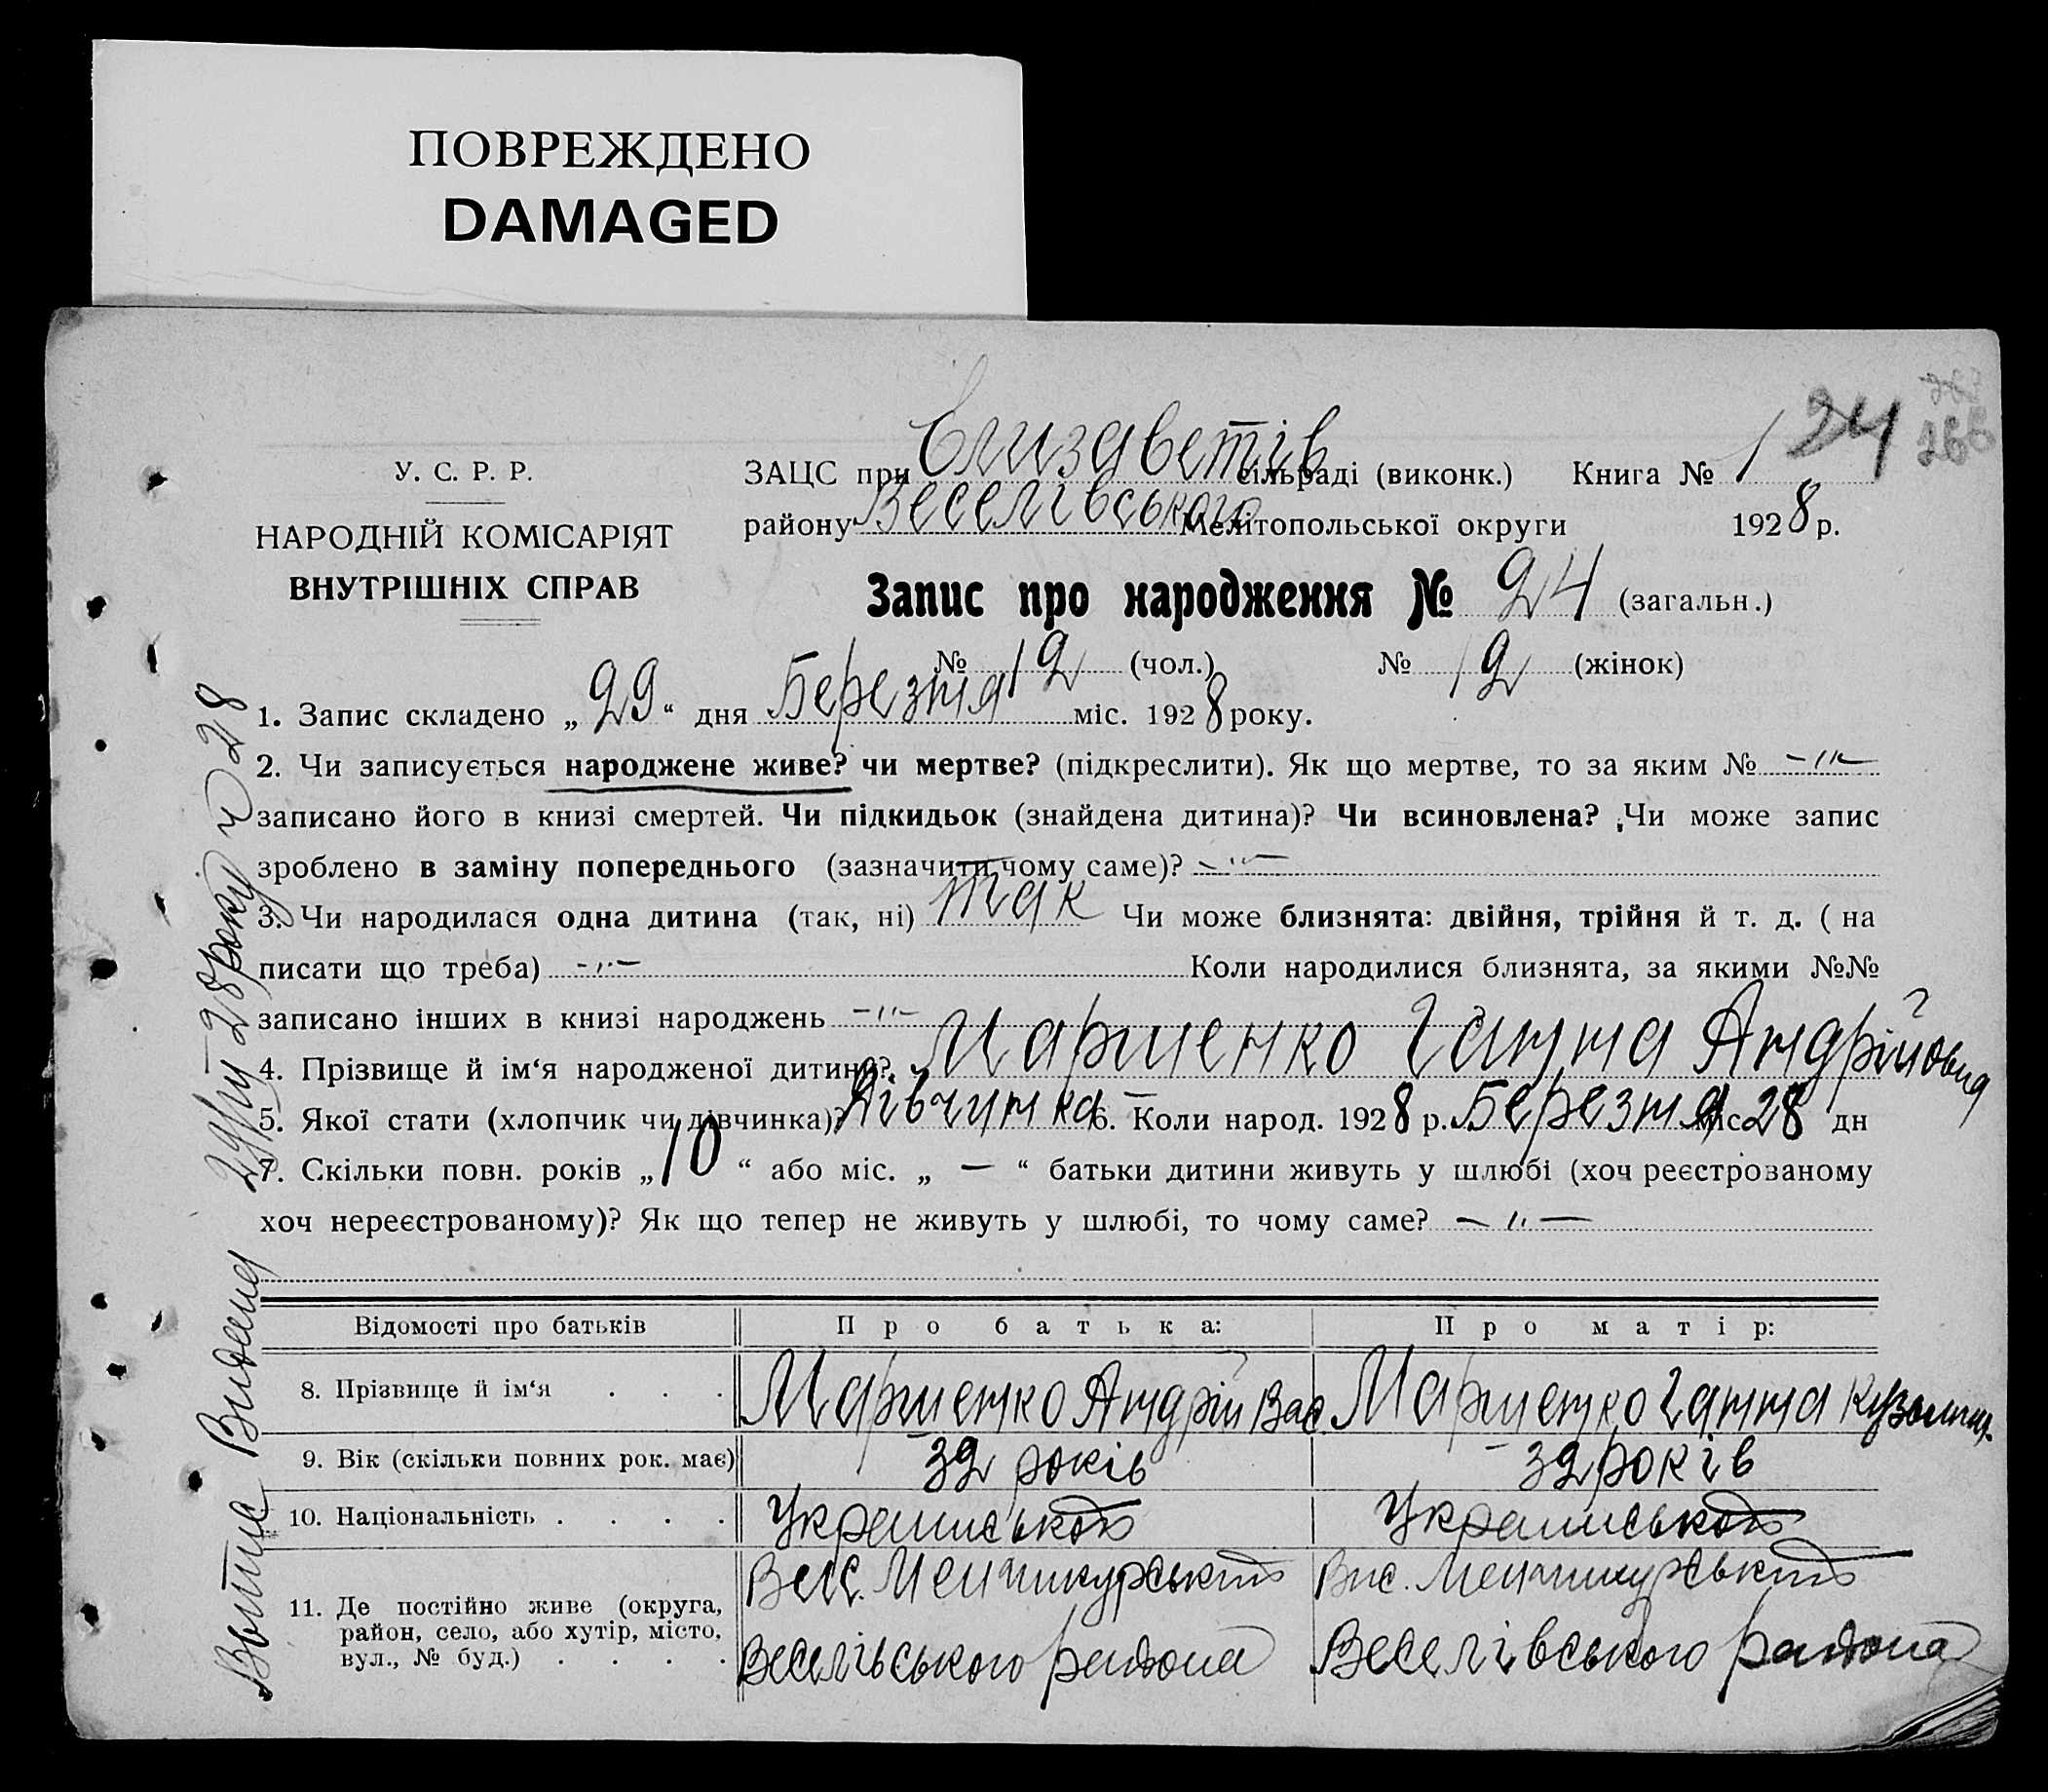 ПОВРЕЖДЕНО
DAMAGED
24
У. С. Р. Р.
НАРОДНІЙ КОМІСАРІЯТ
ВНУТРІШНІХ СПРАВ
ЗАЦС при Єлизаветів сільраді (виконк.) Книга № 1
району Веселівського Мелітопольської округи 1928 р.
Запис про народження № 24 (загальн.)
№ 12 (чол.) № 12 (жінок)
1. Запис складено „29“ дня Березня міс. 1928 року.
2. Чи записується народжене живе? чи мертве? (підкреслити). Як що мертве, то за яким № -"-
записано його в книзі смертей. Чи підкидьок (знайдена дитина)? Чи всиновлена? Чи може запис
зроблено в заміну попереднього (зазначити чому саме)? -"-
3. Чи народилася одна дитина (так, ні) так Чи може близнята: двійня, трійня й т. д. ( на
писати що треба) -"- Коли народилися близнята, за якими №№
записано інших в книзі народжень -"-
4. Прізвище й ім‘я народженої дитини? Марченко Ганна Андрійовна
5. Якої стати (хлопчик чи дівчинка)? Дівчинка 6. Коли народ. 1928 р. Березня міс 28 дн
7. Скільки повн. років „10“ або міс. „ — “ батьки дитини живуть у шлюбі (хоч реєстрованому
хоч нереєстрованому)? Як що тепер не живуть у шлюбі, то чому саме? - " -
Відомості про батьків Про батька: Про матір:
8. Прізвище й ім‘я . . . Марченко Андрій Вас Марченко Ганна
9. Вік (скільки повних рок. має) 32 років 32 років
10. Національність . . . . Українськой Українськой
11. Де постійно живе (округа,
район, село, або хутір, місто,
вул., № буд.) . . . .
Веселівського района Веселівського района
Видана 28 року ч 28